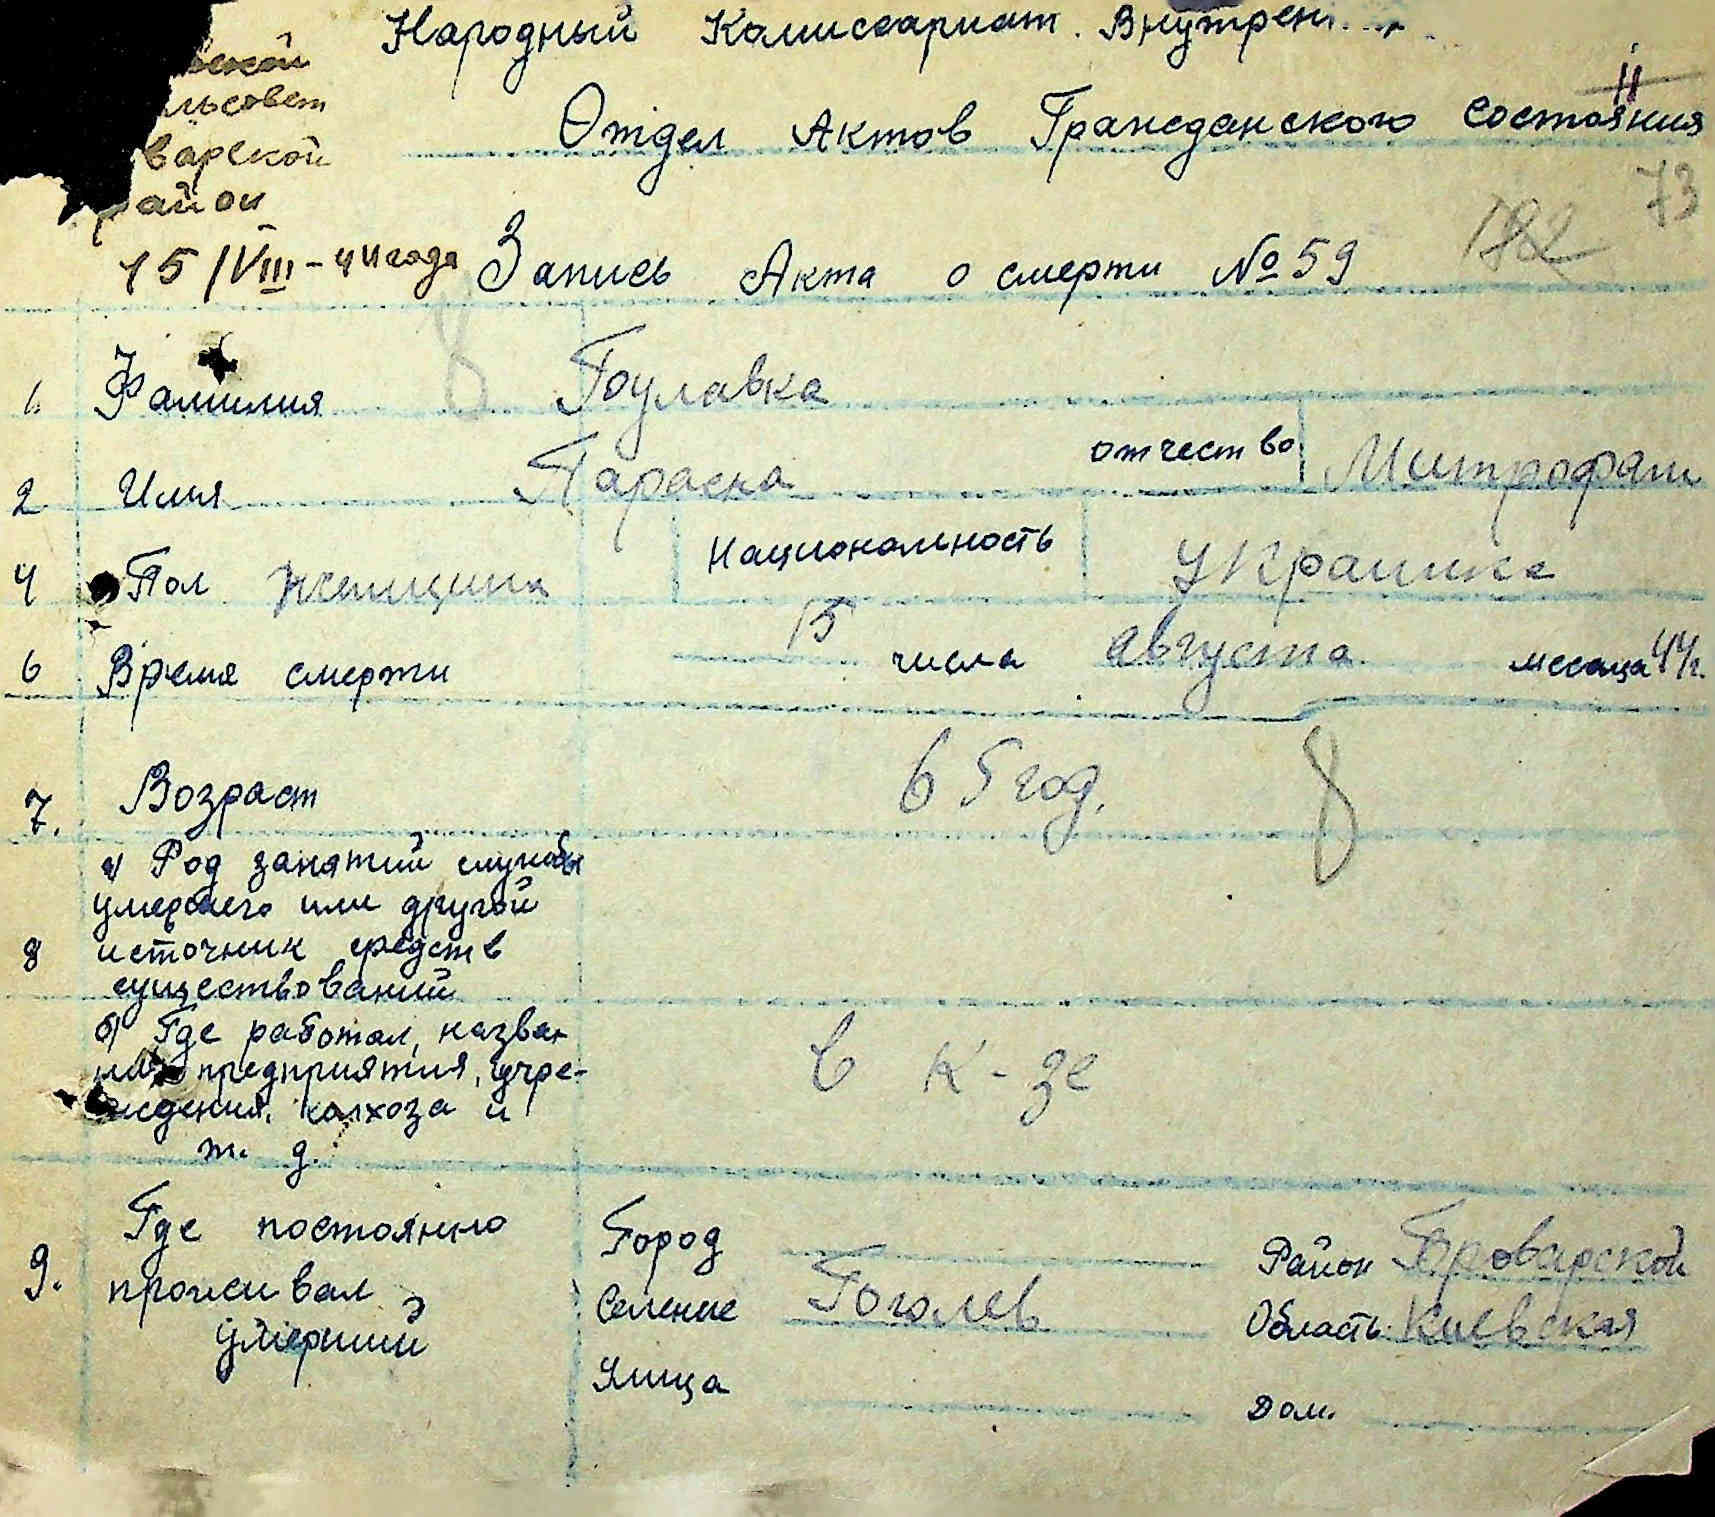 Народный Комиссариат Внутрен
ской
льсовет
Отдел Актов Гражданского состояния
варской
район
73
182
15/VIII-44 года Запись Акта о смерти № 59
1. Фамилия
2 Имя Параска отчество Митрофан
4 Пол женщина Национальность украинка
6 Время смерти 15 числа августа месеца 44г.
7. Возраст 65 год. 8
а) Род занятий службы
умершего или другой
8 источник средств
существований
б) Где работал, назва-
ние предприятия, учре-
ждения, колхоза и
т. д.
в к-зе
9. Где постоянно
проживал
умерший
Город Район Броварской
Селение Гоголев Область Киевская
Улица Дом.